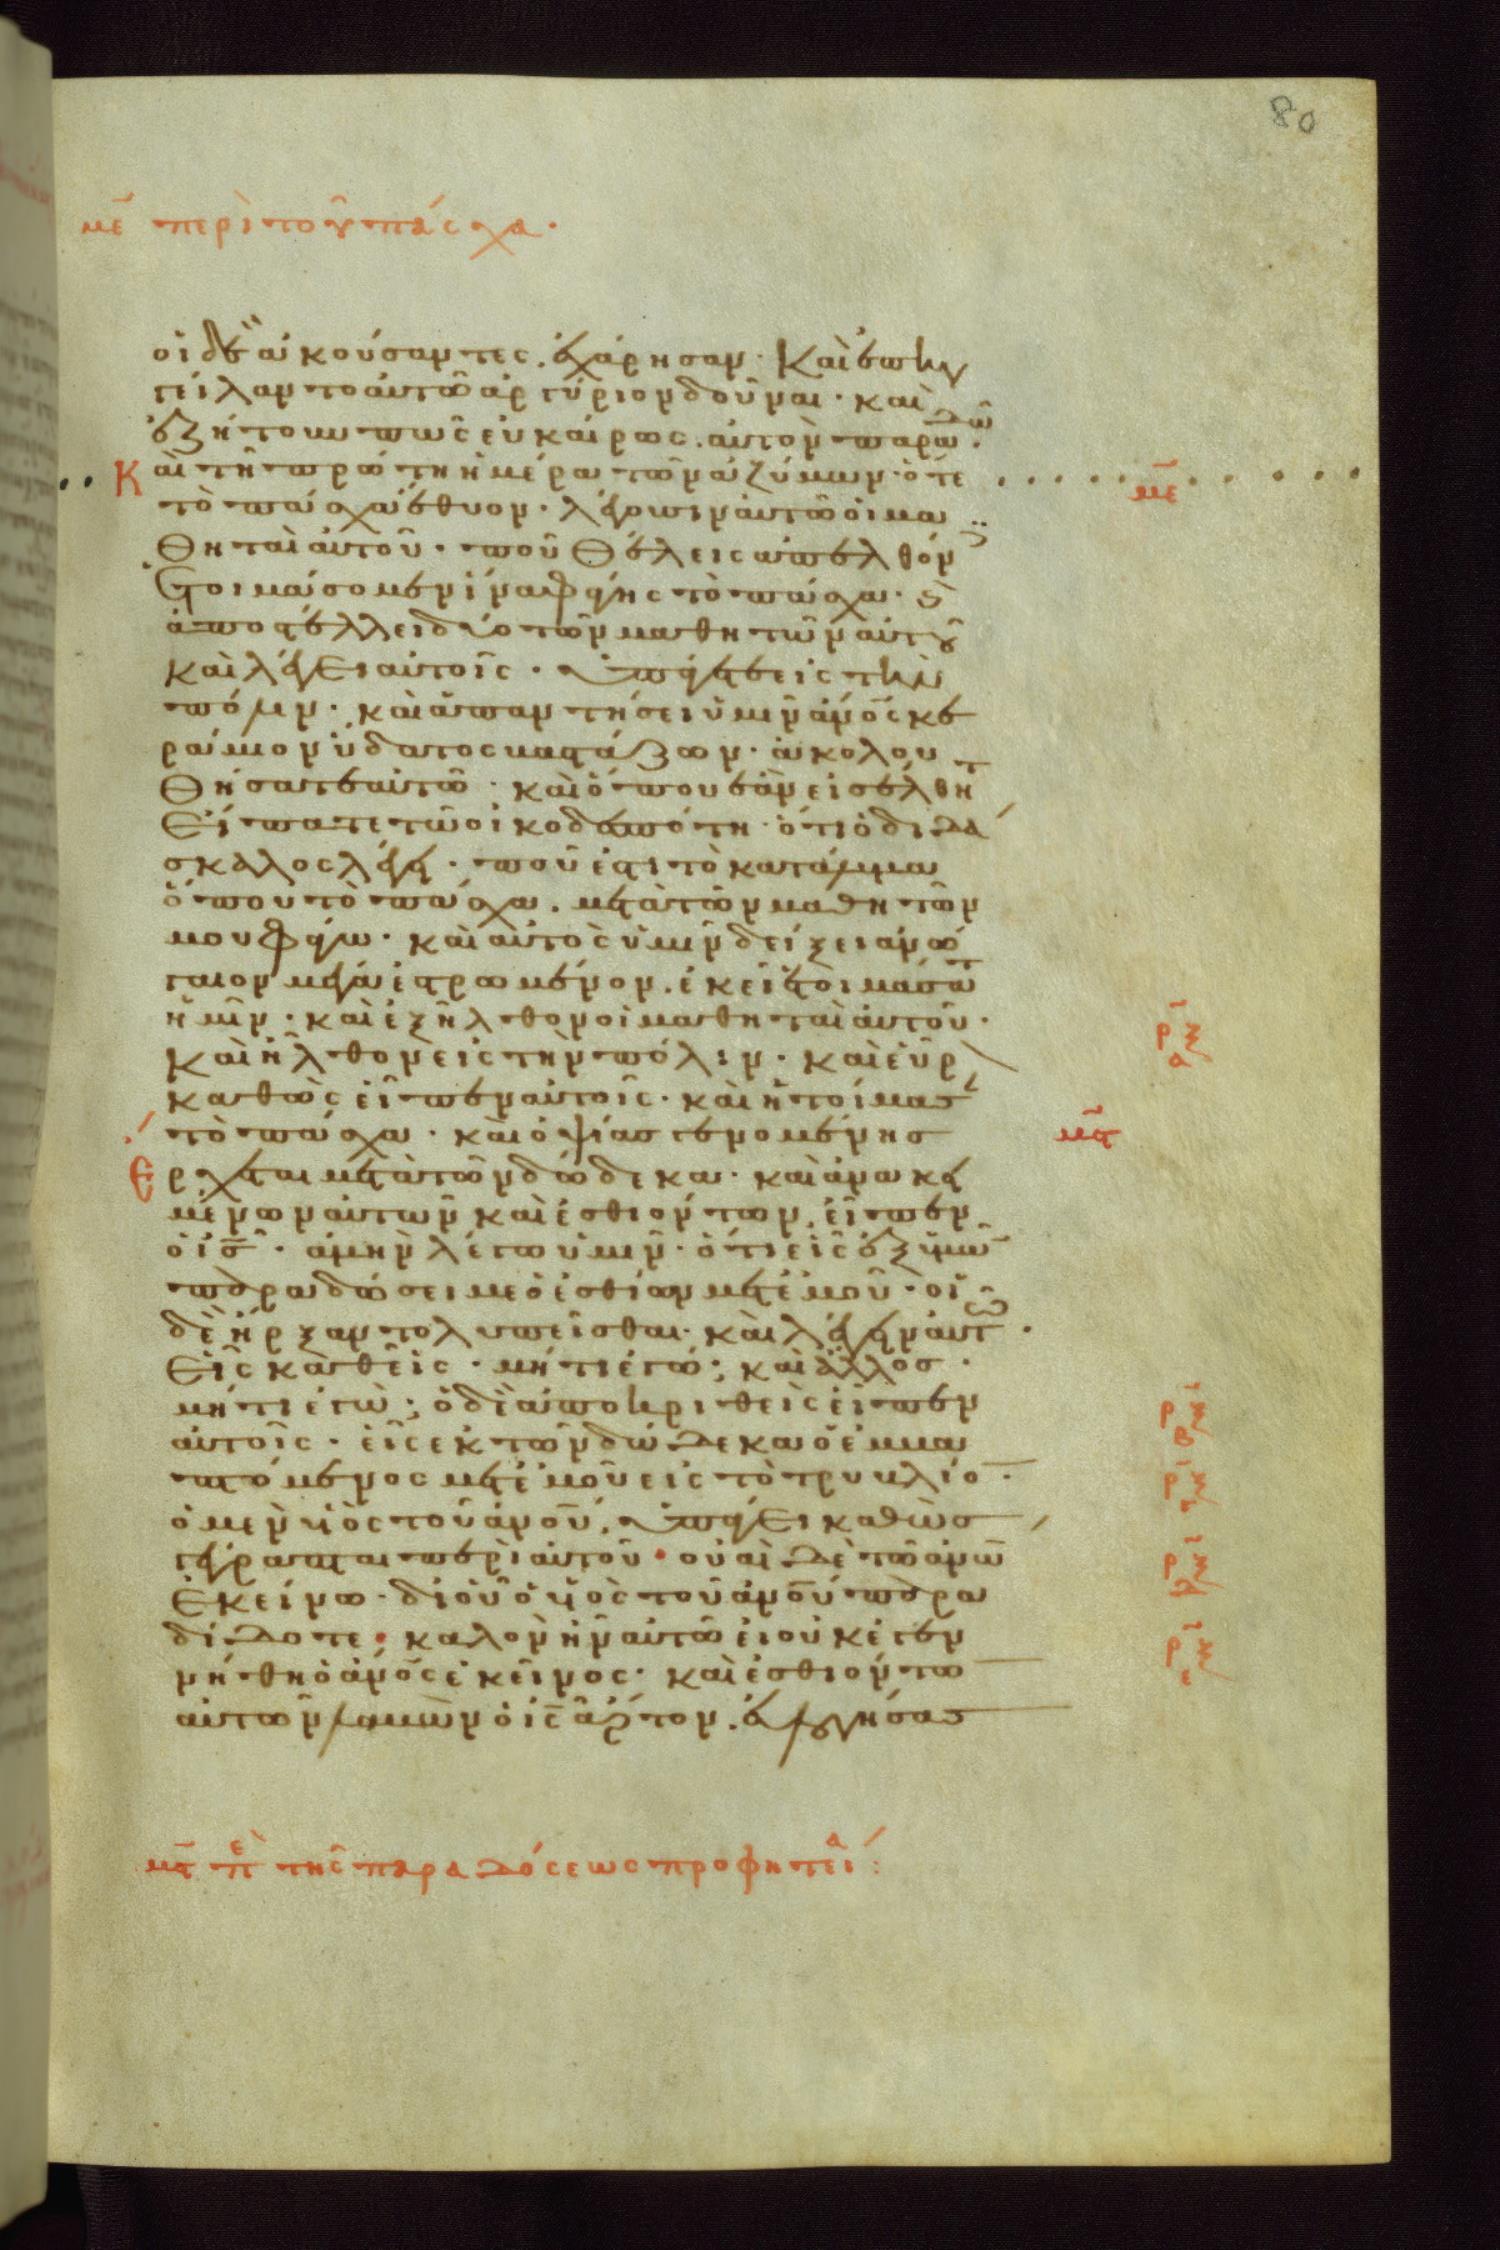 80
με̅ περὶ τοῦ πάσχα·
οἱ δὲ ἀκούσαντες. ἐχάρησαν· Καὶ ἐπηγ
γείλαντο αὐτῶ ἀργύριον δοῦναι· καὶ
ἐζήτουν πῶς εὐκαίρως. αὐτὸν παραδῶ·
Καὶ τῆ πρώτη ἡμέρα τῶν ἀζύμων· ὅτε
με̅
τὸ πάσχα ἔθυον· λέγουσιν αὐτῶ οἱ μα
θηταὶ αὐτοῦ· ποῦ θέλεις ἀπελθόν
ἑτοιμάσομεν ἵνα φάγης τὸ πάσχα· Καὶ
ἀποστέλλει δύο τῶν μαθητῶν αὐτοῦ
καὶ λέγει αὐτοῖς· ὑπάγετε εἰς τὴν
πόλιν· καὶ ἀπαντήσει ὑμῖν ἀνο̅ς κε
ράμιον ὕδατος βαστάζων· ἀκολου
θήσατε αὐτῶ· καὶ ὅπου ἐὰν εἰσέλθη
Εἴπατε τῶ οἰκοδεσπότη· ὅτι ὁ διδά
σκαλος λέγει· ποῦ ἐστι τὸ κατάλυμα
ὅπου τὸ πάσχα. μετὰ τῶν μαθητῶν
μου φάγω· καὶ αὐτὸς ὑμῖν δείξει ἀνώ
γαιον μέγα ἐστρωμένον. ἐκεῖ ἑτοιμάσατ
ἡμῖν· καὶ ἐξῆλθον οἱ μαθηταὶ αὐτοῦ·
ρ̅ξ̅ α
Καὶ ἦλθον εἰς τὴν πόλιν· καὶ εὗρ
καθὼς εἶπεν αὐτοῖς· καὶ ἡτοίμασ
τὸ πάσχα· καὶ ὀψίας γενομένης
μς̅
Ἔρχεται μετὰ τῶν δώδεκα· καὶ ἀνακει
μένων αὐτῶν καὶ ἐσθιόντων, εἶπεν
ὁ ις̅· ἀμὴν λέγω ὑμῖν· ὅτι εἷς ἐξ ὑμῶ
παραδώσει με ὁ ἐσθίων μετ ἐμοῦ· οἱ
δὲ ἤρξαντο λυπεῖσθαι· καὶ λέγειν αὐτῶ·
Εἷς καθεῖς· μήτι ἐγώ; καὶ ἄλλος·
μήτι ἐγὼ; ὁ δὲ ἀποκριθεὶς εἶπεν
ρ̅ξ̅ β
αὐτοῖς· εἷς ἐκ τῶν δώδεκα ὁ ἐμβα
πτόμενος μετ ἐμοῦ εἰς τὸ τρυβλίο̅·
ρ̅ξ̅ γ
ὁ μὲν υἱὸς τοῦ ἀνο̅ύ, ὑπάγει καθὼς
γέγραπται περὶ αὐτοῦ· οὐαὶ δὲ τῶ ἀνω̅
ρ̅ξ̅ δ
Ἐκείνω· δι οὗ ὁ υἱὸς τοῦ ἀνο̅ύ παρα
δίδοται· καλὸν ἦν αὐτῶ εἰ οὐκ ἐγεν
ρ̅ξ̅ ε
νήθη ὁ ἀνο̅ς ἐκεῖνος· καὶ ἐσθιόντω
αὐτῶν λαβὼν ὁ ις̅ ἄρτον. εὐλογήσας
μς̅ πε̅ὶ τῆς παραδόσεως προφητεία: